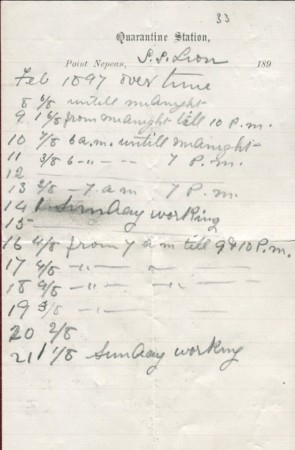 33
Quarantine Station,
Point Nepean, S.S. Lion 189
Feb 1897 over time
8 5/8 untill midnight
9 1 5/8 from midnight till 10 P.m.
10 7/8 6 a.m. untill midnight
11 3/8 6 - " - - 7 P.m.
12
13 2/8 - 7 am 7 P.m.
14 1 Sunday working
15
16 4/8 from 7 am till 9 & 10 P.m.
17 4/8 - " - " -
18 9/8 - " - " -
19 3/8 - " -
20 2/8
21 1 1/8 Sunday working